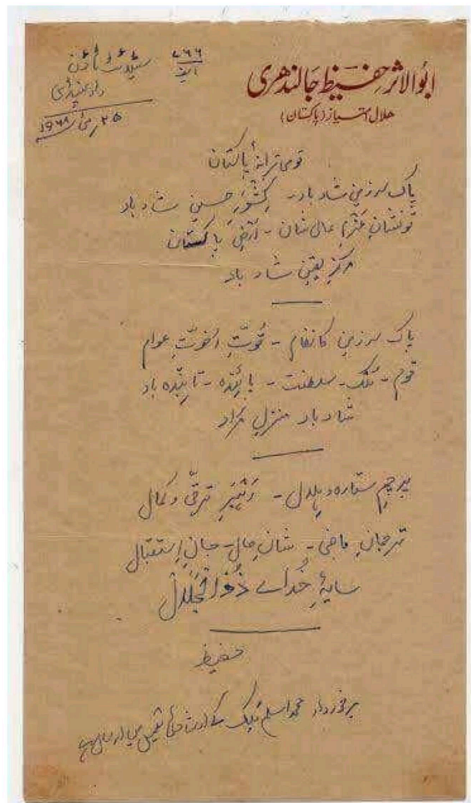 ابوالاثر حفیظ جالندھری
ہلالِ امتیاز (پاکستان)
۷۸۶
سیٹلائٹ ٹاؤن
راولپنڈی
۲۵ مئی ۱۹۶۸
قومی ترانۂ پاکستان
پاک سرزمین شاد باد - کِشْوَرِ حسین شاد باد
تُو نشانِ عزمِ عالی شان - ارضِ پاکستان
مرکزِ یقین شاد باد
پاک سرزمین کا نظام - قُوّتِ اُخوّتِ عوام
قوم - مُلک - سلطنت - پائِندہ - تابِندہ باد
شاد باد منزلِ مُراد
پرچمِ ستارہ و ہلال - رَہْبَرِ ترقّی و کمال
ترجمانِ ماضی - شانِ حال - جانِ اِستقبال
سایۂ خُدائے ذُوالْجَلال
حفیظ
برخوردار محمد اسلم کے ارشاد کی تعمیل میں